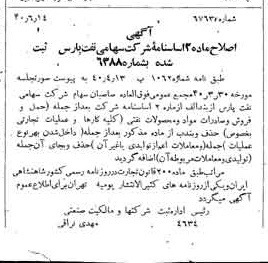 شماره ۶۷۶۳۷ ۴۰٫۶٫۱۴
آگهی
اصلاح ماده ۲ اساسنامه شرکت سهامی نفت پارس ثبت
شده بشماره ۶۳۸۸
طبق نامه شماره ۱۰۶۲ پ ۴۰٫۴٫۱۳ به پیوست صورتجلسه
مورخه ۴۰٫۳٫۳۰ مجمع عمومی فوق العاده صاحبان سهام شرکت سهامی
نفت پارس از بند الف از ماده ۲ اساسنامه شرکت بعد از جمله (حمل و
فروش و صادرات مواد و محصولات نفتی (کلیه کارها و عملیات تجارتی
بخصوص) حذف و بند ب از ماده مذکور بعد از جمله (داخل شدن بهر نوع
عملیات) جمله (و معاملات اعم از تولیدی یا غیر آن) حذف و بجای آن جمله
(تولیدی و معاملات مربوطه آن) اضافه گردید
مراتب طبق ماده ۲۰۰ قانون تجارت در روزنامه رسمی کشور شاهنشاهی
ایران و یکی از روزنامه های کثیر الانتشار یومیه تهران برای اطلاع عموم
آگهی میگردد
رئیس اداره ثبت شرکتها و مالکیت صنعتی
۴۶۳۴ مهدی نراقی